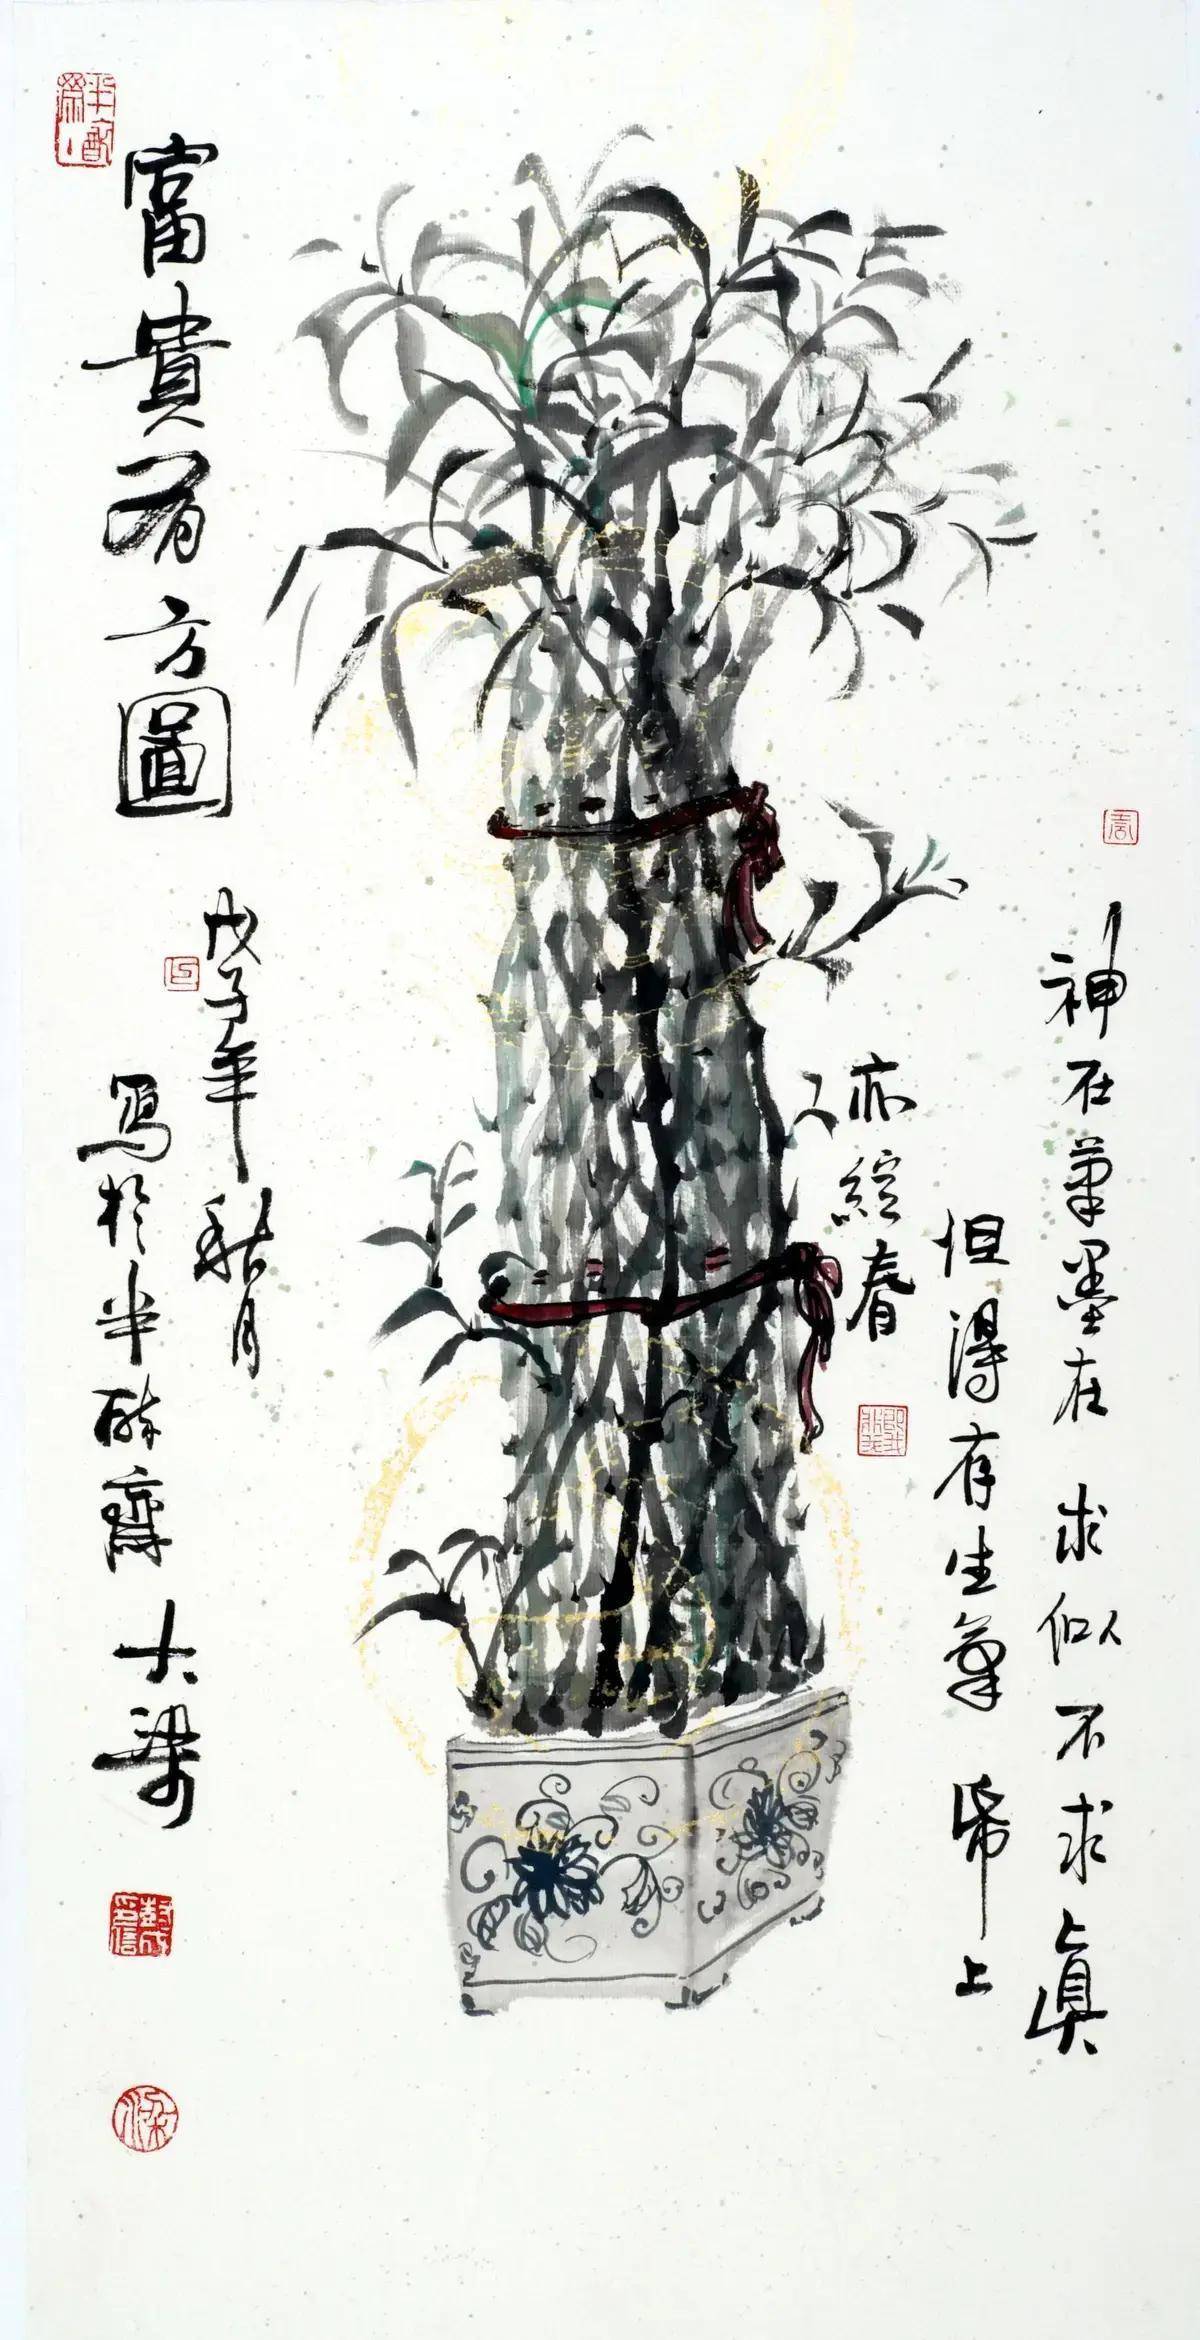 神在筆墨在 求似不求真
但得有生氣 紙上
亦綻春
富貴有方圖
戊子年秋月
寫於半醉齋 大梁